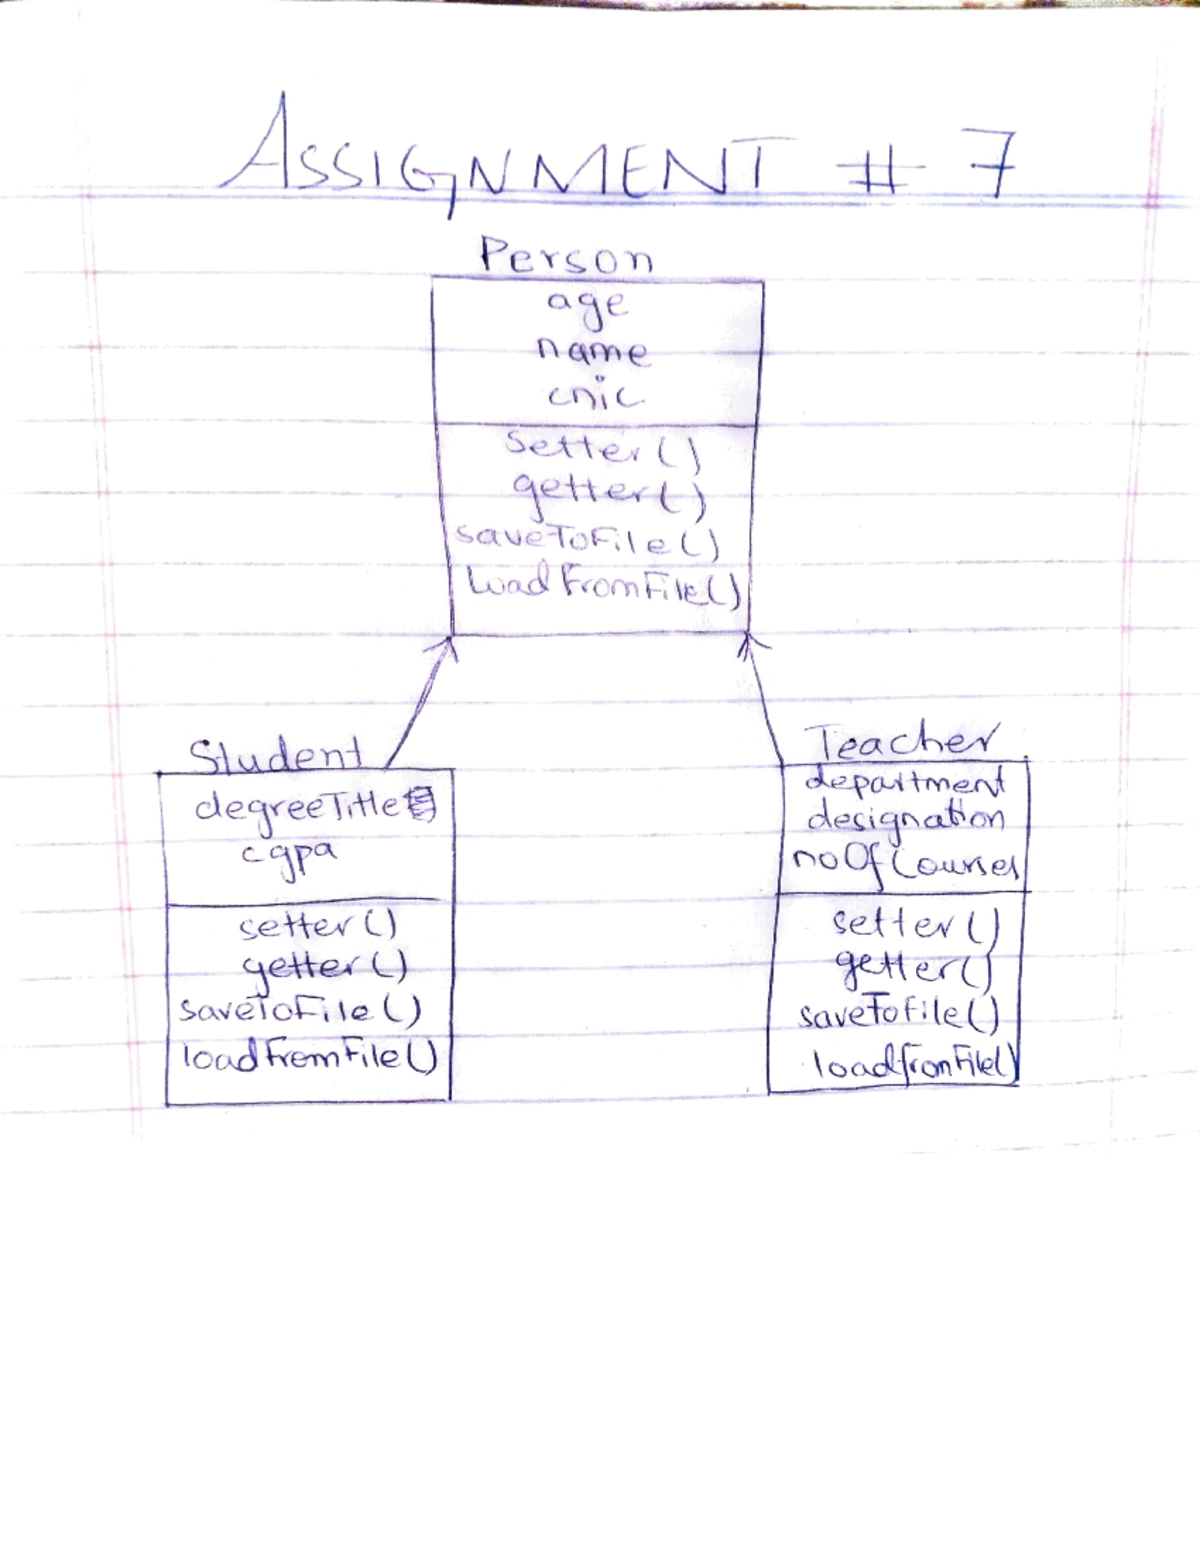 ASSIGNMENT # 7
Person
age
name
cnic
setter()
getter()
saveToFile()
loadFromFile()
Student
degreeTitle
cgpa
setter()
getter()
saveToFile()
loadFromFile()
Teacher
department
designation
noOfCourses
setter()
getter()
saveToFile()
loadfromFile()